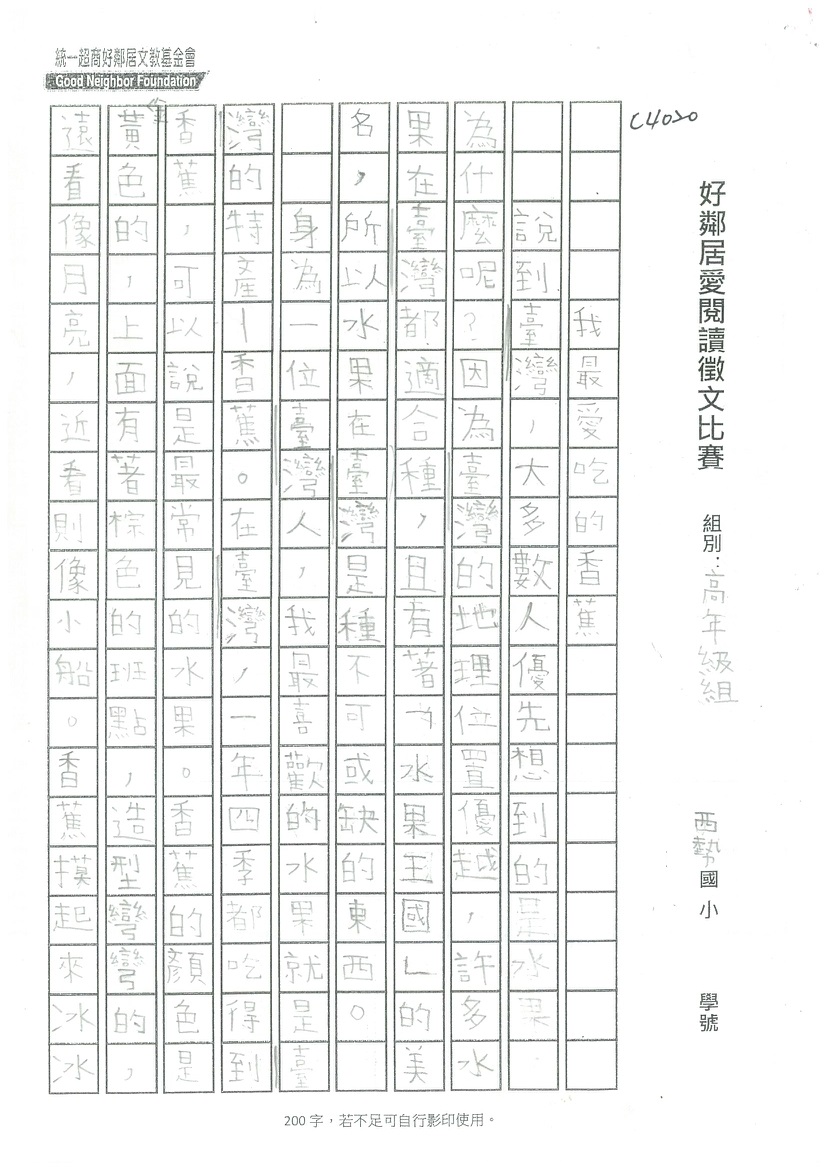 統一超商好鄰居文教基金會
Good Neighbor Foundation
C4020
好鄰居愛閱讀徵文比賽 組別：高年級組 西勢國小 學號
我最愛吃的香蕉
說到臺灣，大多數人優先想到的是水果.
為什麼呢？因為臺灣的地理位置優越，許多水
果在臺灣都適合種，且有著「水果王國」的美
名，所以水果在臺灣是種不可或缺的東西。
身為一位臺灣人，我最喜歡的水果就是臺
灣的特產—香蕉。在臺灣，一年四季都吃得到
香蕉，可以說是最常見的水果。香蕉的顏色是
金黃色的，上面有著棕色的班點，造型彎彎的，
遠看像月亮，近看則像小船。香蕉摸起來冰冰
200字，若不足可自行影印使用。